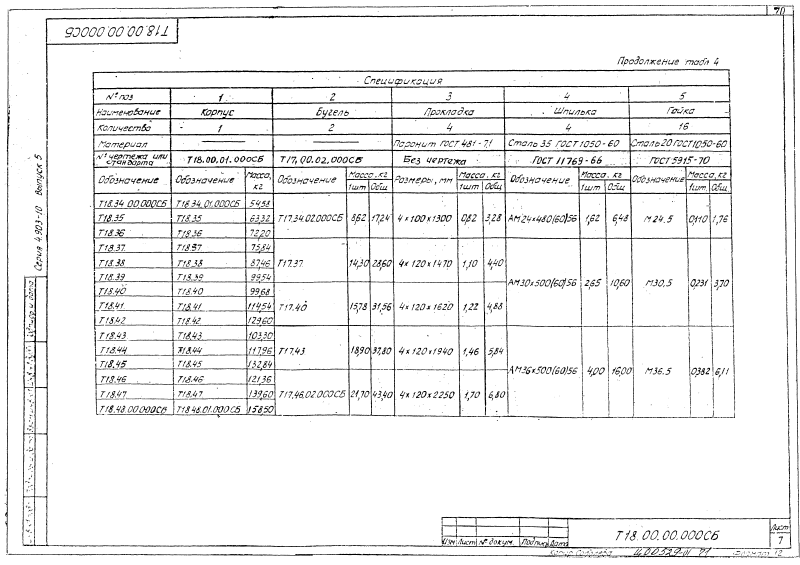 70
Т18.00.00.000СБ
Продолжение табл 4
Спецификация
№ поз 1 2 3 4 5
Наименование Корпус Бугель Прокладка Шпилька Гайка
Количество 1 2 4 4 16
Материал Паронит ГОСТ 481-71 Сталь 35 ГОСТ 1050-60 Сталь 20 ГОСТ 1050-60
№ чертежа или стандарта Т18.00.01.000СБ Т17.00.02.000СБ Без чертежа ГОСТ 11769-66 ГОСТ 5915-70
Обозначение Обозначение Масса, кг Обозначение Масса, кг Размеры, мм Масса, кг Обозначение Масса, кг Обозначение Масса, кг
1шт Общ 1шт Общ 1шт Общ 1шт Общ
Т18.34.00.000СБ Т18.34.01.000СБ 54,58
Т18.35 Т18.35 63,32 Т17.34.02.000СБ 8,62 17,24 4×100×1300 0,82 3,28 АМ24×480(60)56 1,62 6,48 М24.5 0,110 1,76
Т18.36 Т18.36 72,20
Т18.37 Т18.37 75,84
Т18.38 Т18.38 87,46 Т17.37 14,30 28,60 4×120×1470 1,10 4,40
Т18.39 Т18.39 99,54 АМ30×500(60)56 2,65 10,60 М30.5 0,231 3,70
Т18.40 Т18.40 99,68
Т18.41 Т18.41 114,54 Т17.40 15,78 31,56 4×120×1620 1,22 4,88
Т18.42 Т18.42 129,60
Т18.43 Т18.43 103,30
Т18.44 Т18.44 117,96 Т17.43 18,90 37,80 4×120×1940 1,46 5,84
Т18.45 Т18.45 132,84 АМ36×500(60)56 4,00 16,00 М36.5 0,382 6,11
Т18.46 Т18.46 121,36
Т18.47 Т18.47 139,60 Т17.46.02.000СБ 21,70 43,40 4×120×2250 1,70 6,80
Т18.48.00.000СБ Т18.48.01.000СБ 158,50
Серия 4.903-10 Выпуск 5
Т18.00.00.000СБ
Лист
7
Изм Лист № докум. Подпись Дата
Формат 12